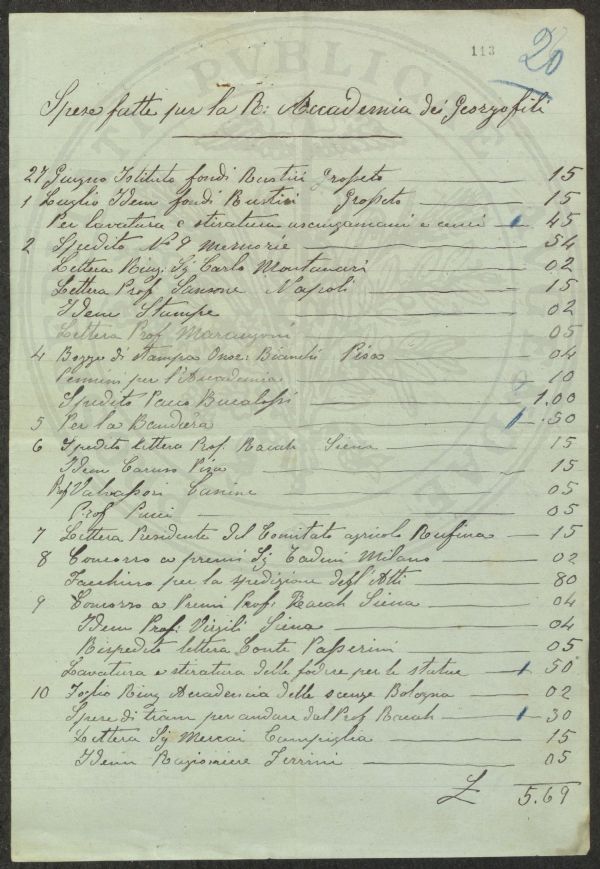 113
20
Spese fatte per la R: Accademia dei Georgofili
27 Giugno Istituto fondi Rustici Grosseto 15
1 Luglio Idem fondi Rustici Grosseto 15
Per lavatura e stiratura asciugamani e cenci 45
2 Spedito N° 9 Memorie 54
Lettera Ring: Sig Carlo Montanari 02
Lettera Prof Sansone Napoli 15
Idem Stampe 02
Lettera Prof Marangoni 05
4 Bozze di Stampa Onor: Bianchi Pisa 04
Pennini per l'Accademia 10
Spedito Pacco Bucalossi 1.00
5 Per la Bandiera .50
6 Spedito lettera Prof. Racah Siena 15
Idem Caruso Pisa 15
Prof Valvassori Cascine 05
Prof Pucci 05
7 Lettera Presidente del Comitato agricolo Rufina 15
8 Concorso a premi Sig Cadini Milano 02
Facchino per la spedizione degl'Atti 80
9 Concorso a Premi Prof: Racah Siena 04
Idem Prof: Virgili Siena 04
Rispedito lettera Conte Passerini 05
Lavatura e stiratura delle fodere per le statue 50
10 Foglio Ring Accademia delle scienze Bologna 02
Spese di tram per andare dal Prof Racah 30
Lettera Sig Campiglia 15
Idem Ragioniere 05
£ 5.69